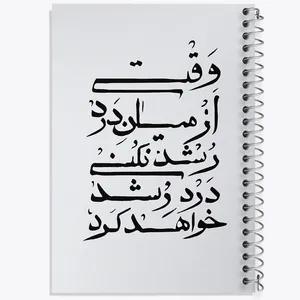 وقتی
از میان درد
رشد نکنی
درد رشد
خواهد کرد